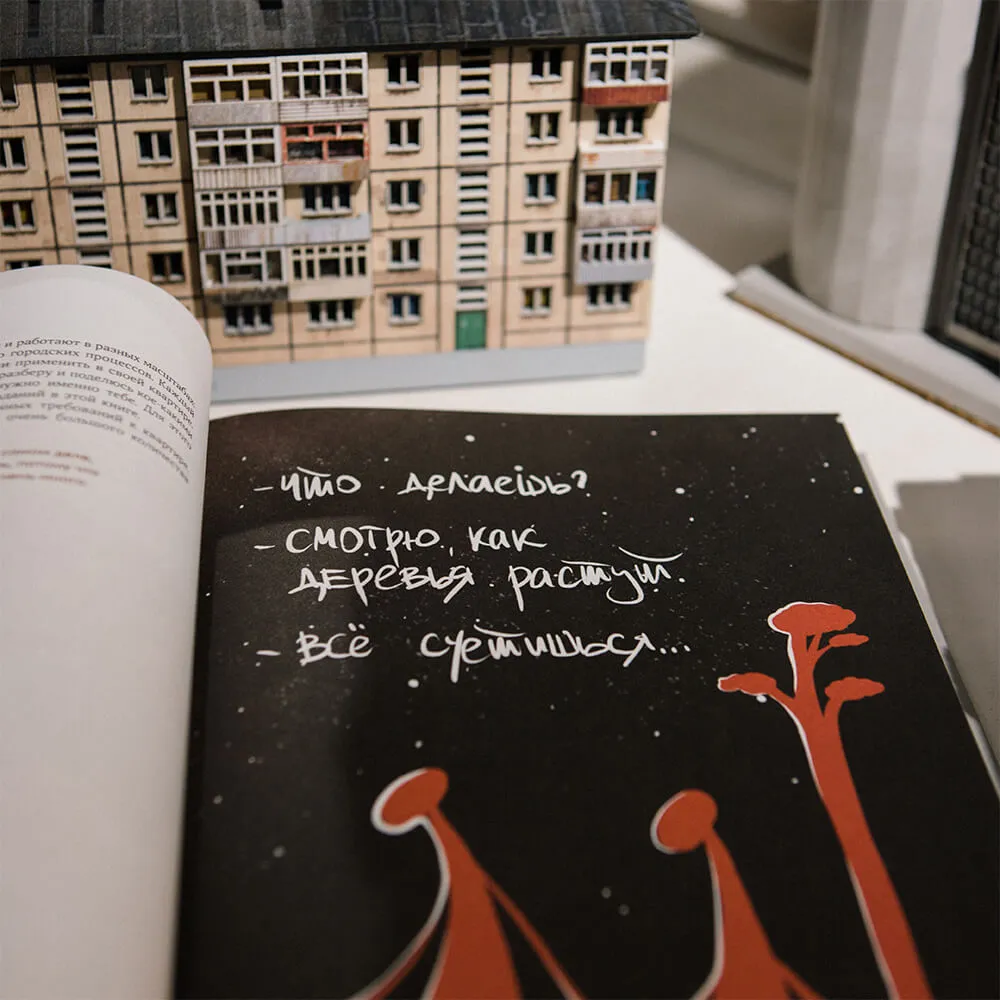 и работают в разных масштабах
городских процессов. Каждый
применить в своей квартире.
разберу и поделюсь кое-какими
нужно именно тебе. Для этого
заданий в этой книге
требований к квартире
очень большого количества
– что делаешь?
– смотрю, как
деревья растут.
– всё суетишься...